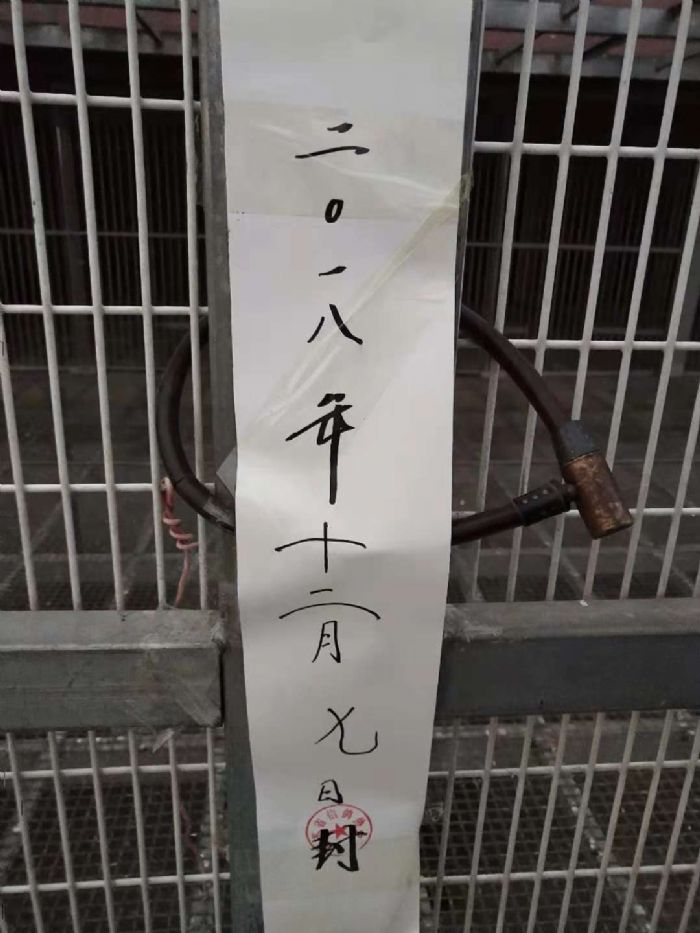 二0一八年十二月九日封